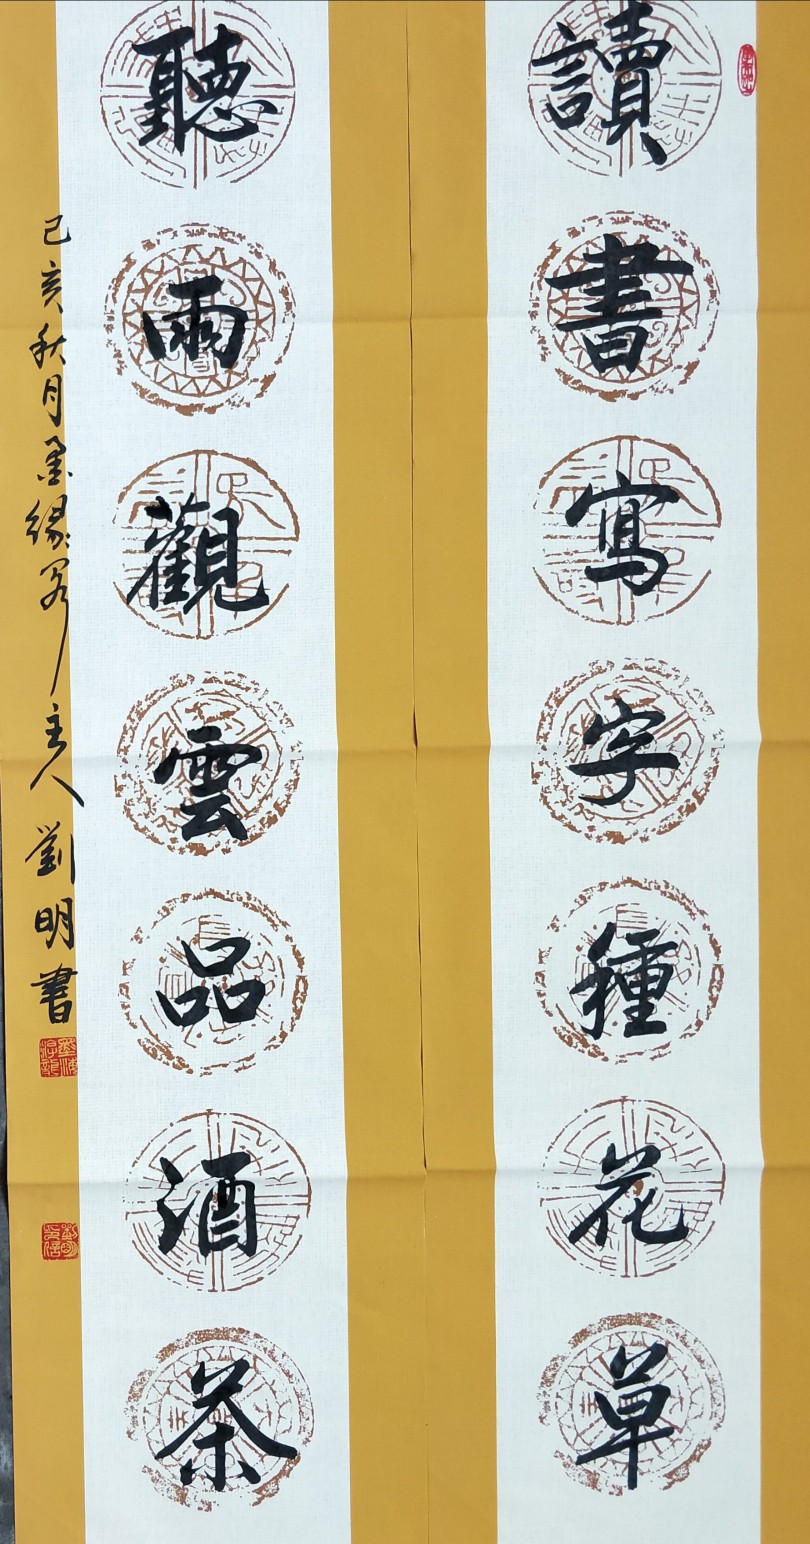 讀書寫字種花草
聽雨觀雲品酒茶
己亥秋月墨緣閣主人劉明書